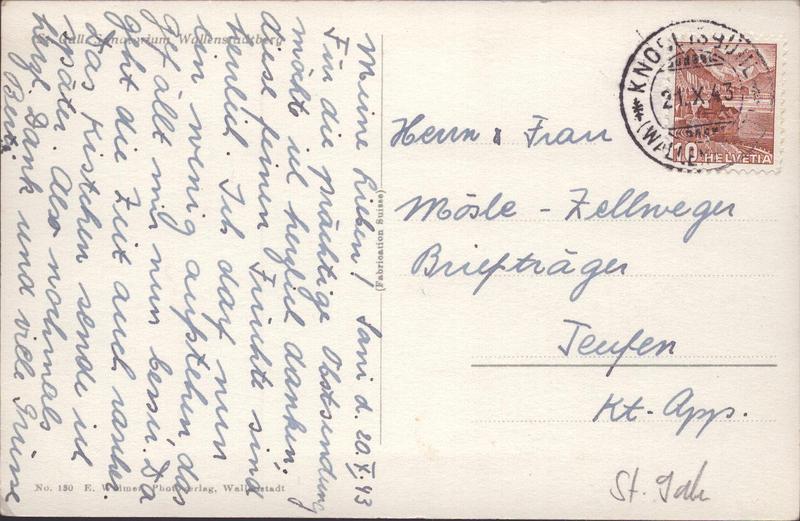 St. Gall. Sanatorium Wallenstadtberg
Meine Lieben! Sani d. 20. X. 43
Für die prächtige Obstsendung
möcht ich herzlich danken.
diese feinen Früchte sind
herrlich. Ich darf nun
ein wenig aufstehen, das
gefällt mir nun besser. Da
geht die Zeit auch rascher.
Das Kistchen sende ich
später. Also nochmals
herzl. Dank und viele Grüsse
Berta
(Fabrication Suisse)
No. 130 E. Wolmer, Photoverlag, Wallenstadt
KNOBL
21.X.43
(WALLE
10 HELVETIA
Herrn & Frau
Mösle - Zellweger
Briefträger
Teufen
Kt. App.
St. Gall